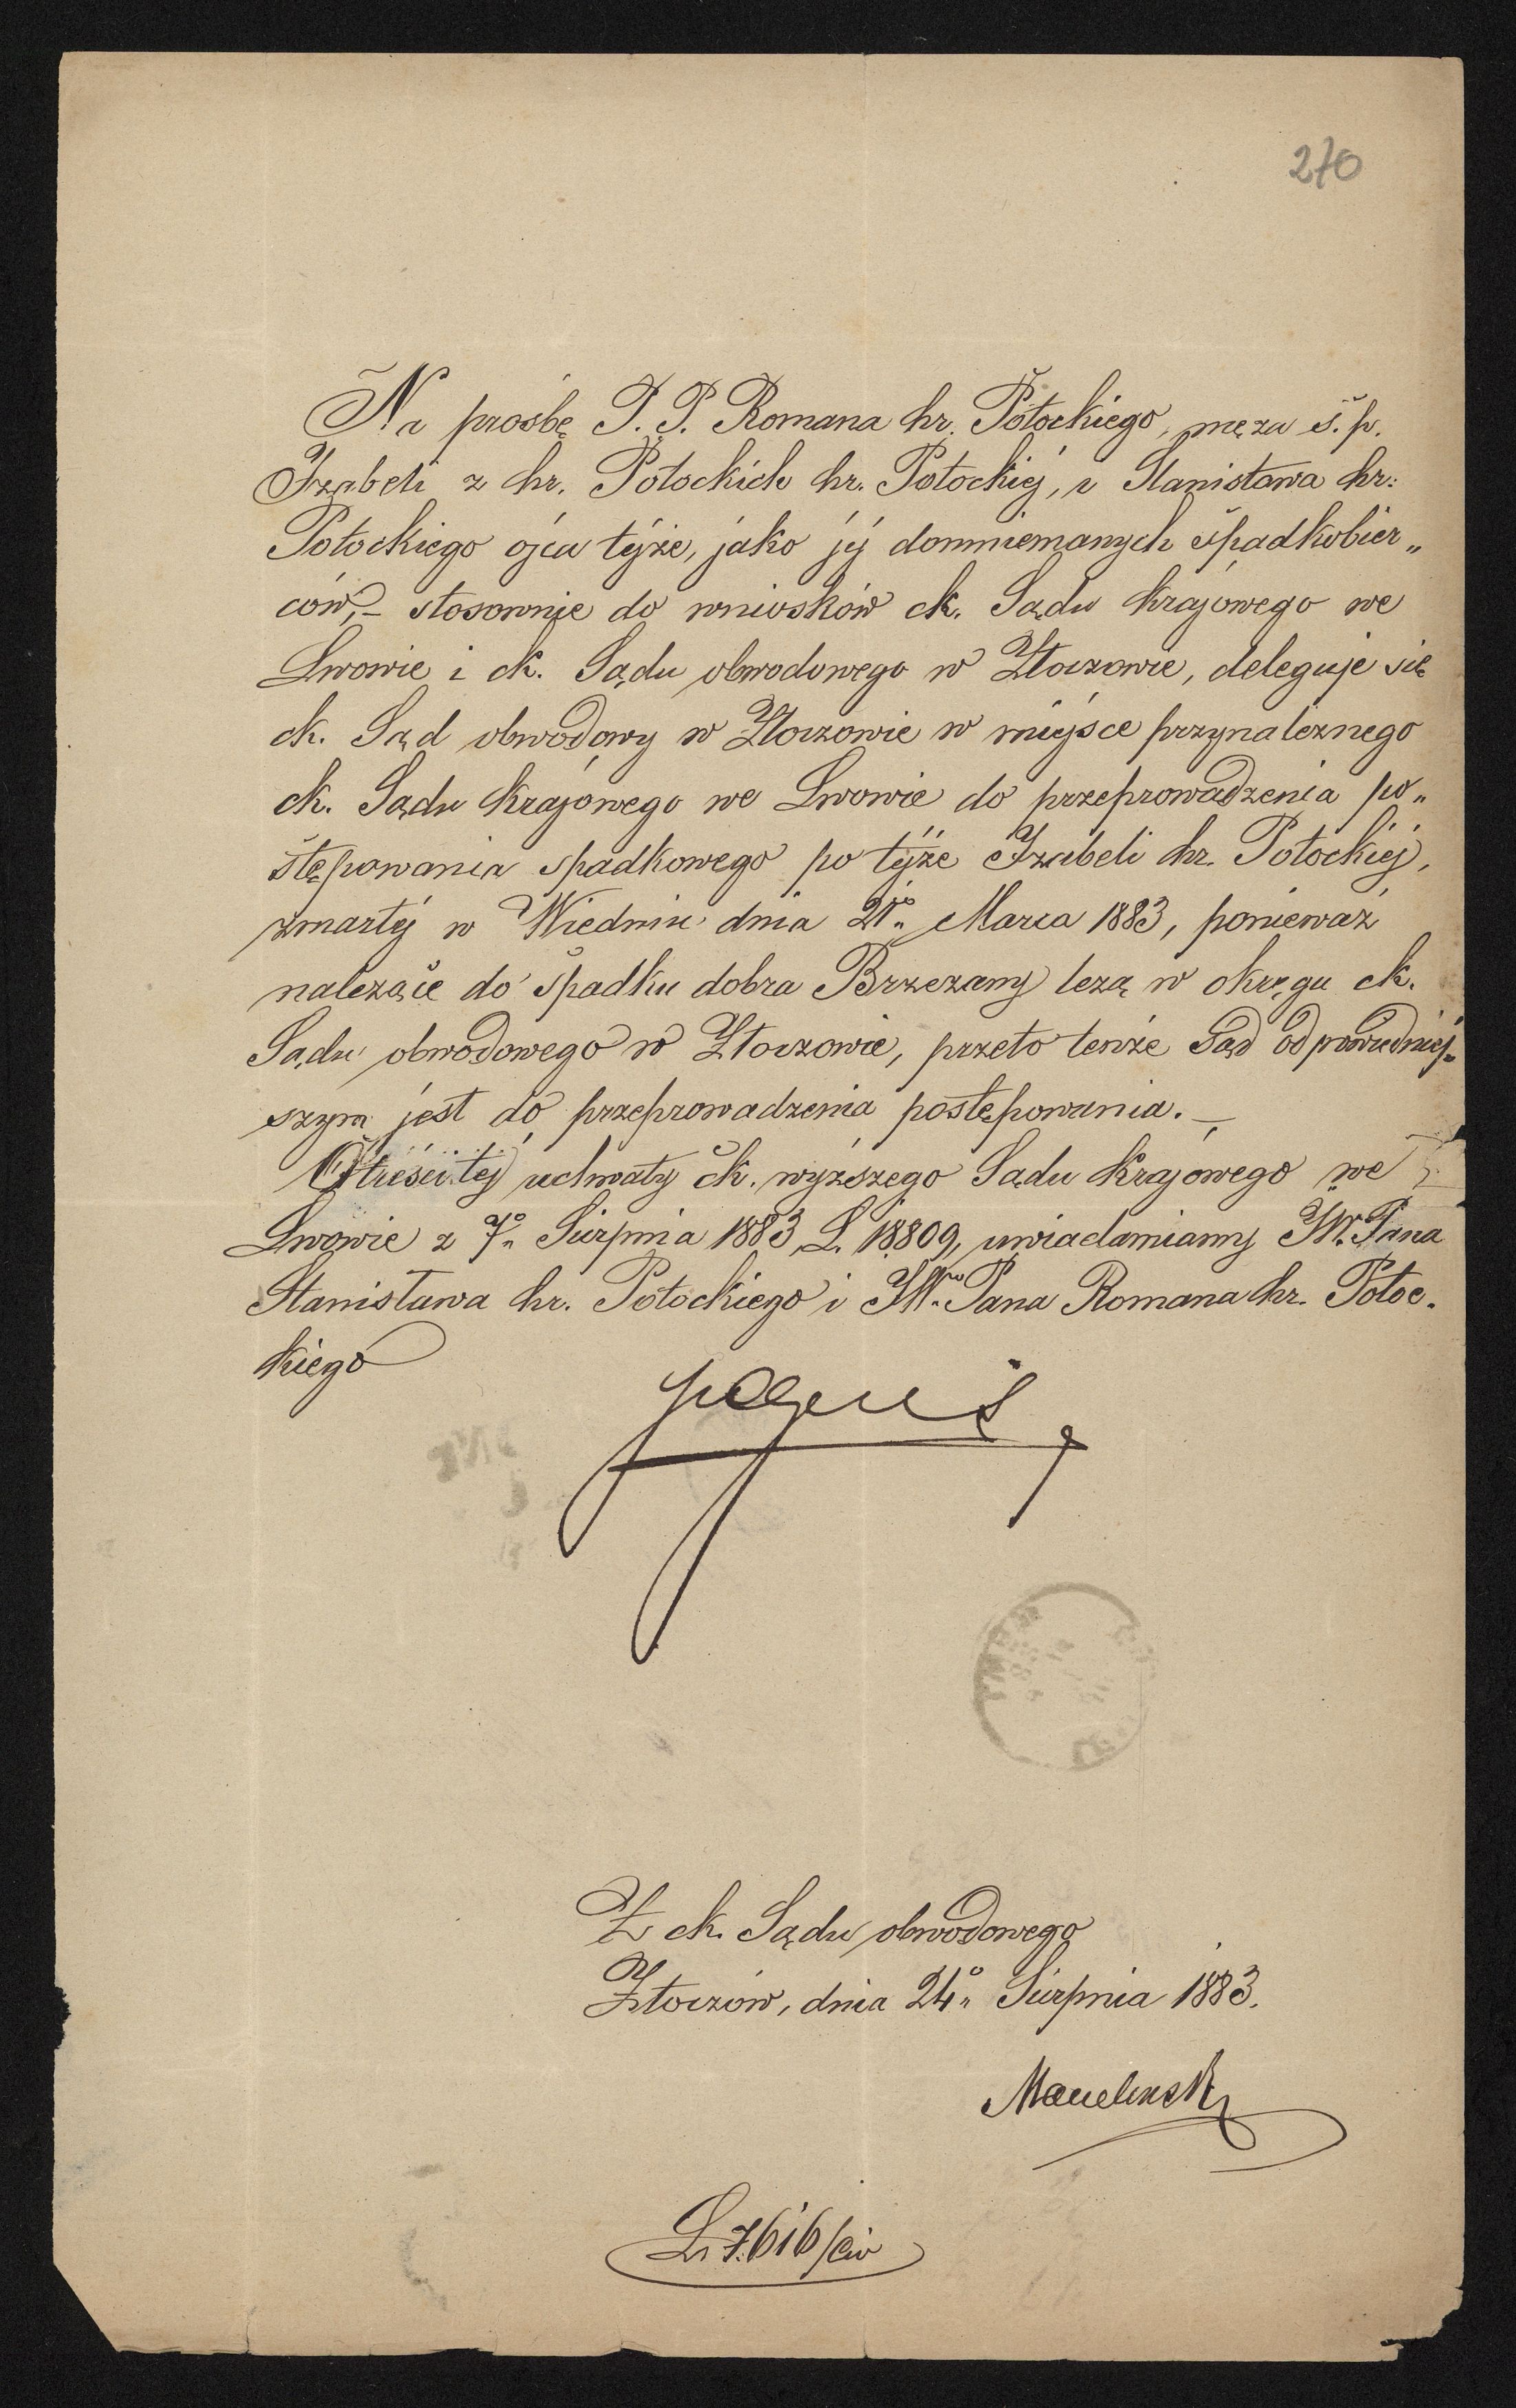 270
Na prośbę P. P. Romana hr. Potockiego, męża ś. p.
Izabeli z hr. Potockich hr. Potockiéj, i Stanisława hr:
Potockiego ojca téjże, jako jéj domniemanych spadkobier„
ców,– stosownie do wniosków ck. Sądu krajowego we
Lwowie i ck. Sądu obwodowego w Złoczowie, deleguje się
ck. Sąd obwodowy w Złoczowie w miéjsce przynależnego
ck. Sądu krajowego we Lwowie do przeprowadzenia po„
stępowania spadkowego po téjże Izabeli hr. Potockiéj,
zmarłéj w Wiedniu dnia 21º„ Marca 1883, ponieważ
należące do spadku dobra Brzeżany leżą w okręgu ck.
Sądu obwodowego w Złoczowie, przeto tenże Sąd odpowiedniéj„
szym jest do przeprowadzenia postępowania. –
O treści téj uchwały ck. wyższego Sądu krajowego we
Lwowie z 7º„ Sierpnia 1883 L. 18809, uwiadamiamy JW. Pana
Stanisława hr. Potockiego i JWº Pana Romana hr. Potoc„
kiego
Z ck. Sądu obwodowego
Złoczów, dnia 24º„ Sierpnia 1883.
L. 7616/civ